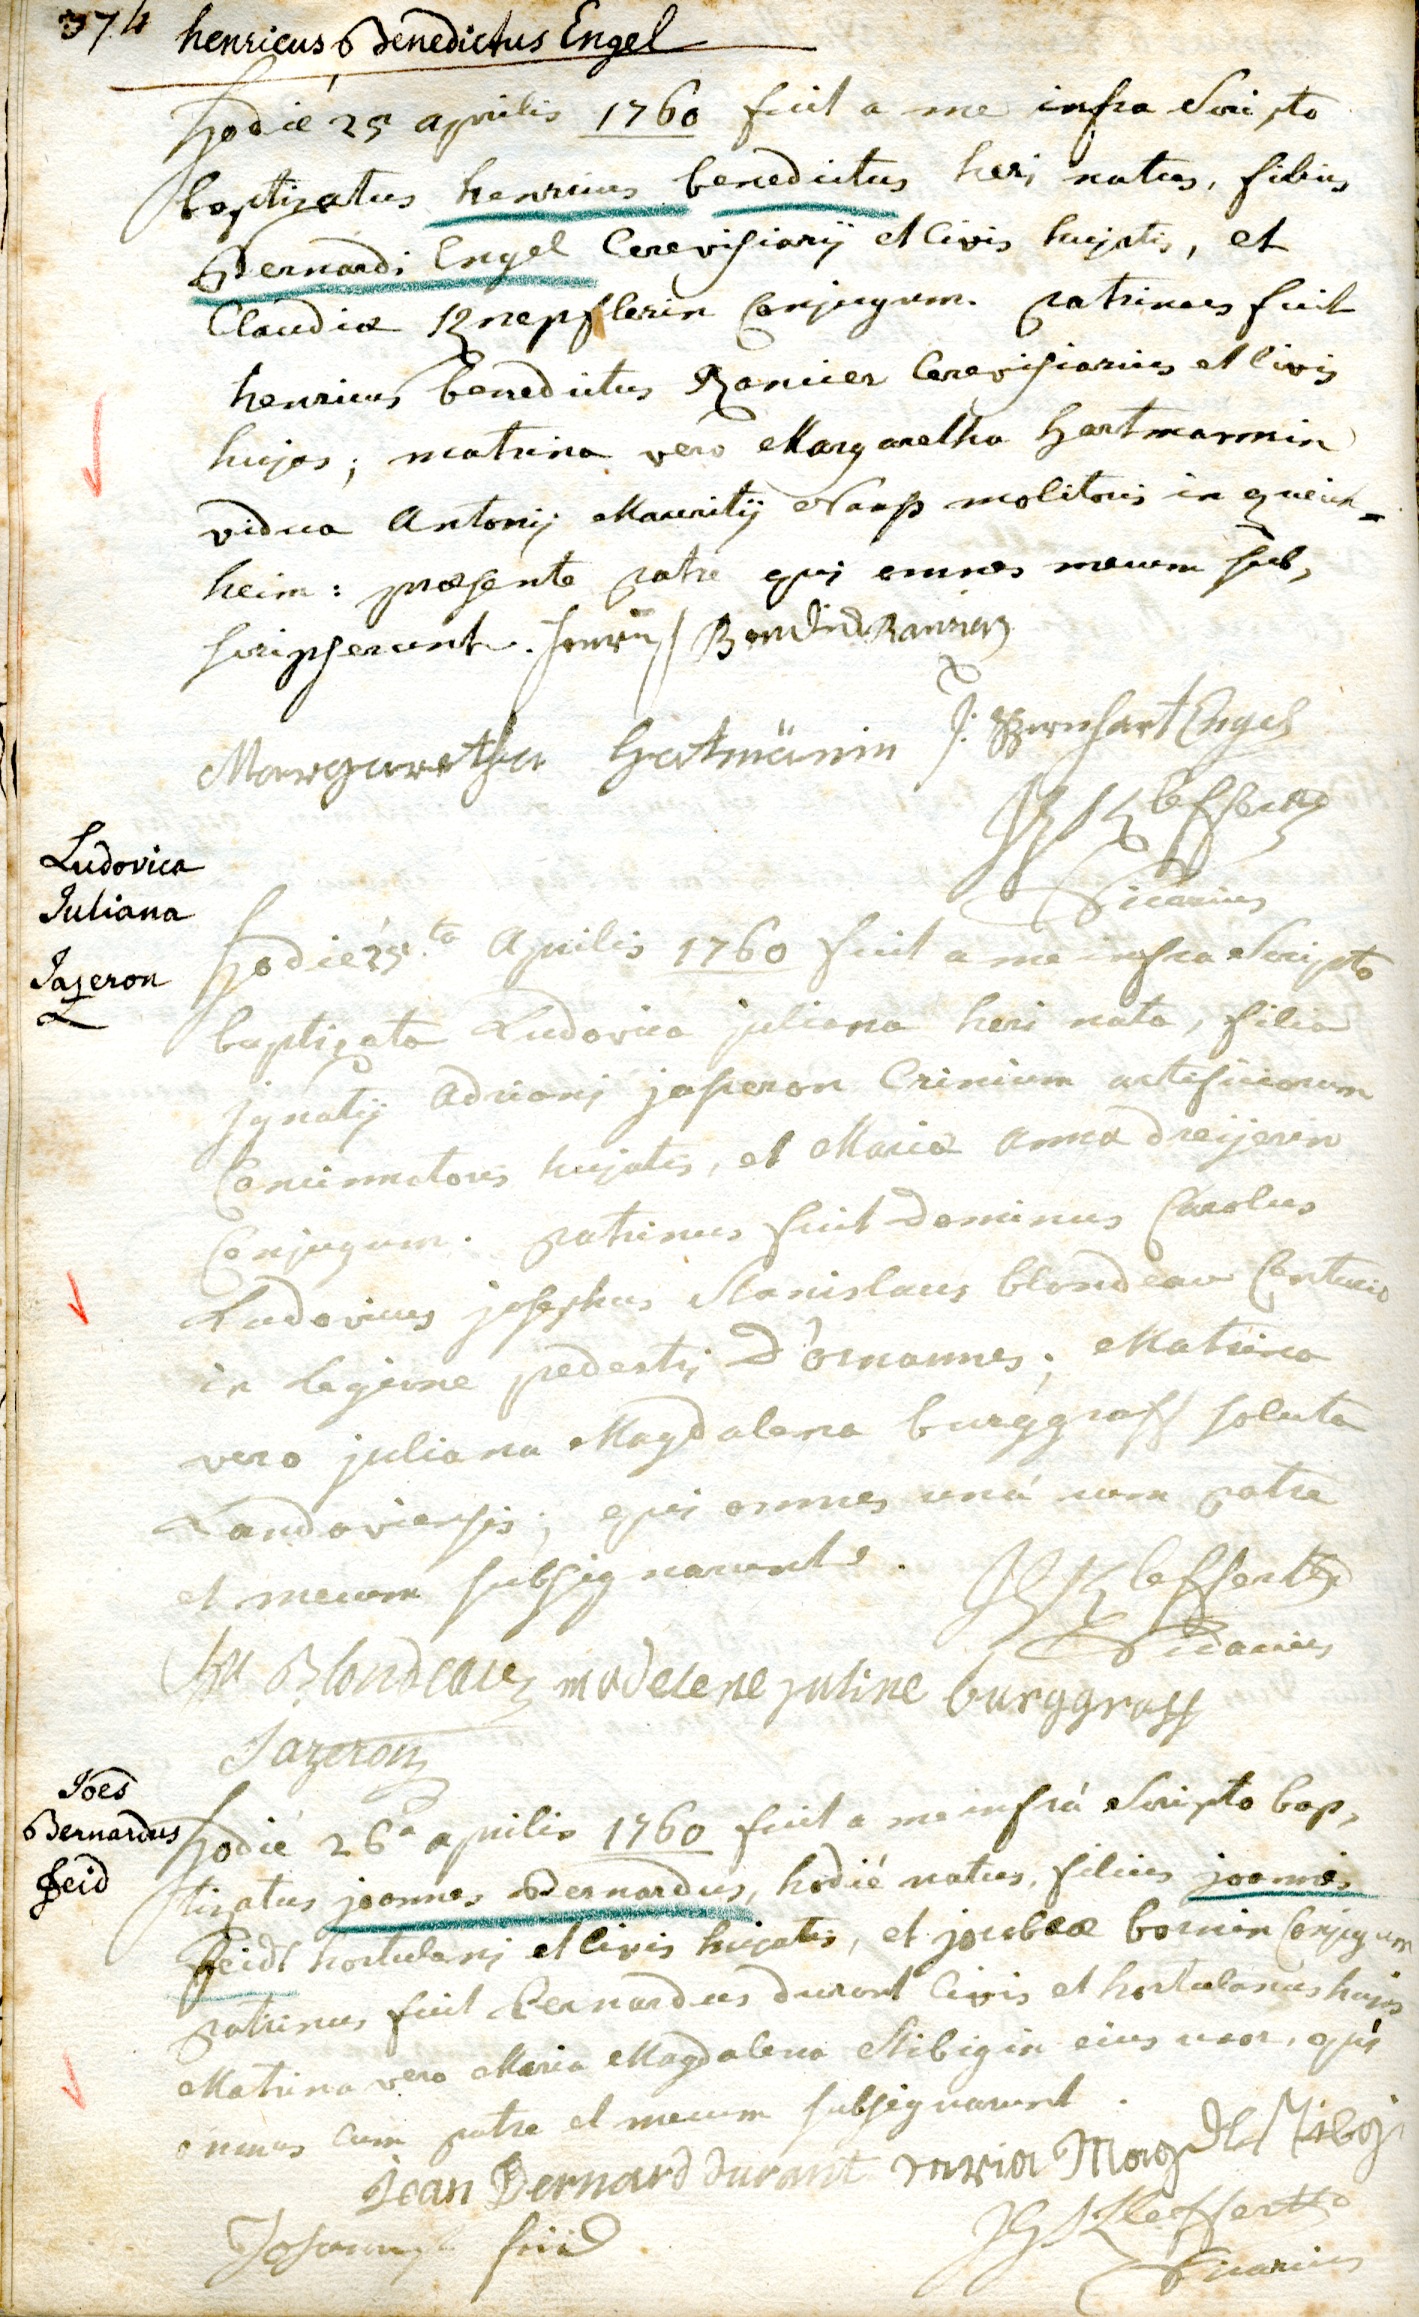 374 henricus Benedictus Engel
Hodié 25 aprilis 1760 fuit a me infra Scripto
baptizatus henricus benedictus heri natus, filius
Bernardi Engel Cerevisiarij et Civis hujatis, et
Claudiæ Knepflerin Conjugum. patrinus fuit
henricus benedictus Ranier Cerevisiarius et Civis
hujas; matrina vero Margaretha Hartmannin
vidua Antonij Mauritij molitoris in queich-
heim: præsente patre qui omnes mecum sub,
scripserunt.
Margaretha Hartmänin J: Bernhart Engel
Kleffert
Vicarius
Ludovica
Juliana
Jazeron
Hodié 25.ta Aprilis 1760 fuit a me infra Scripto
baptizata Ludovica juliana heri nata, filia
Ignatij Adriani jaseron Crinium artificiorum
Concinnatoris hujatis, et Mariæ Anna dreijerin
Conjugum. patrinus fuit Dominus Carolus
Ludovicus josephus Stanislaus blondeau Centurio
in Legione pedestri D'ornannes; Matrina
vero juliana Magdalena burggraff soluta
Landaviensis; qui omnes unà cum patre
et mecum subsignarunt.
Kleffert
Vicarius
Blondeau madelene juline burggraff
Jazeron
Joes
Bernardus
feid
Hodié 26a aprilis 1760 fuit a me infrà Scripto bap,
tizatus joannes Bernardus, hodié natus, filius joannis
feidt hortulani et Civis hujatis, et jacobeæ bornin Conjugum
patrinus fuit Bernardus durant Civis et hortulanus hujas
Matrina vero Maria Magdalena Stibigin eius uxor, qui
omnes cum patre et mecum subsignarunt.
Jean Bernard durant maria Magdl
Kleffert
Vicarius